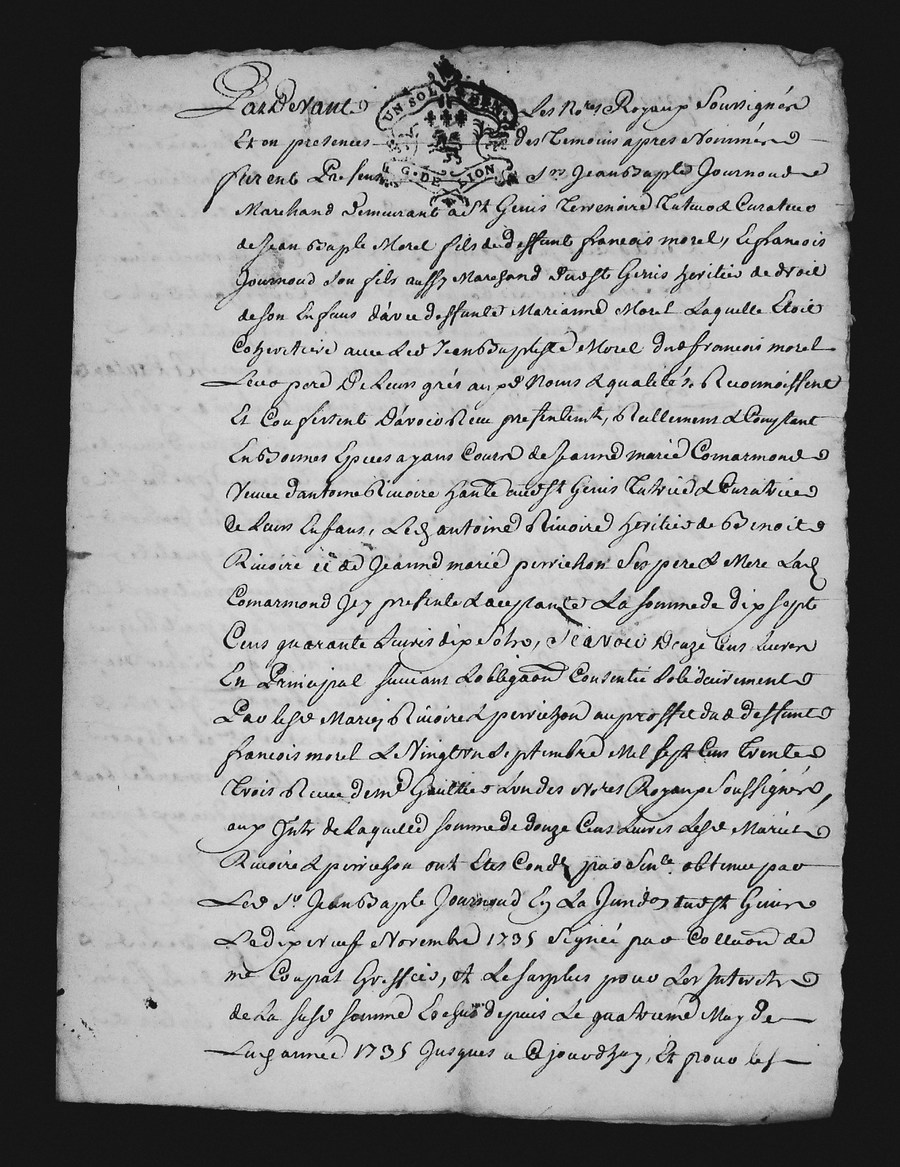 Pardevant Les No.res Royaux Soussignés
UN SOL
G. DE LION
Et en presences des Temoins apres Nommés
furent Presens Sr. Jean Baple Journoud
Marchand Demeurant a St Genis Terrenoire Tuteur & Curateur
de Jean Baple Morel fils de deffunt francois morel, & francois
Journoud son fils aussy Marchand dud St Genis heritier de droit
de son Enfans d'avec deffunte Marianne Morel Laquelle Etoit
Coheretiere avec Led Jean Baptiste Morel dud francois morel
Leur pere De Leurs grés auxd Noms & qualités Reconnoissent
Et Confessent D'avoir Receu presentemt, Rellement & Comptant
En Bonnes Especes ayans Cours de Jeanne marie Comarmond
Veuve d'antoine Rivoire hante dud St Genis Tutrice & Curatrice
de Leurs Enfans, Led antoine Rivoire heritier de Benoit
Rivoire et de Jeanne marie perrichon Ses pere & Mere Lad
Comarmond Icy presente & aceptante La somme de dix sept
Cens quarante Livres dix Sols, Sçavoir Douze Cens Livres
En Principal suivant Lobligaon Consentie Solidairement
Par lesd Mariés Rivoire & perrichon au proffit dud deffunt
francois morel Le Vingt un Septembre Mil Sept Cens Trente
Trois Receue de me Gaultier Lun des Nores Royaux Soussignés,
aux Ints de Laquelle somme de douze Cens Livres Lesd Mariés
Rivoire & perrichon ont Etes Condés par Since obtenue par
Led Sr Jean Baple Journoud En La Juridon dud St Genis
Le dix Neuf Novembre 1735 Signée par Collaon de
me Coupat Greffier, Et Le surplus pour Les Interets
de La susd somme Echus depuis Le quatrieme May de
Lad année 1735 Jusques a Cejourdhuy, Et pour les